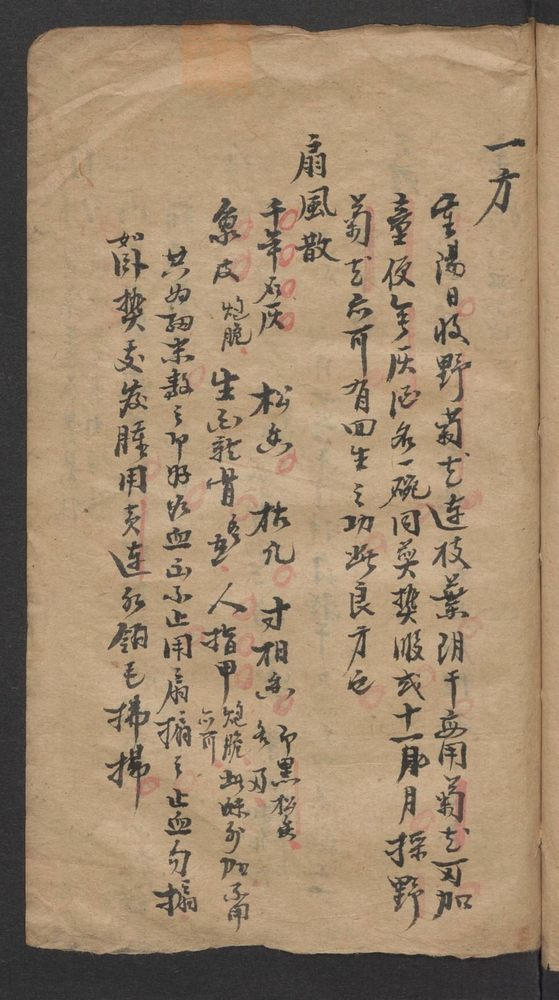 一方
重陽日收野菊花連枝葉阴干每用菊花可加
童便無灰酒各一碗同煎热服或十一月採野
菊花亦可有回生之功此良方也
扇風散
千年石灰 松香 枯凡 寸柏香 即黑松香 各 
象皮炮脆 生龍骨 人指甲炮脆亦可 此味另加用
共为細末敷之即好若血出不止用扇搧之止血勿搧
如卧热交發腫用黄連水鵝毛拂拂